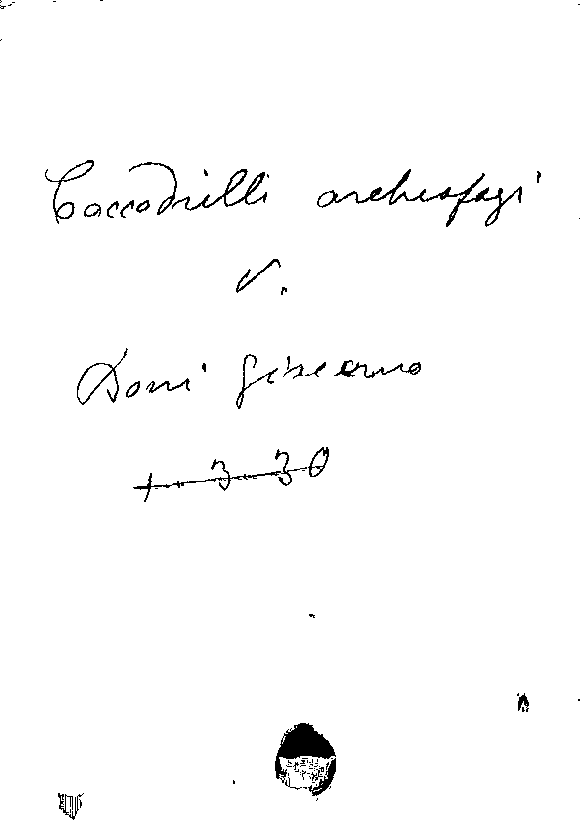 Coccodrilli archeofagi
V.
Doni Giacomo
1. 3. 30